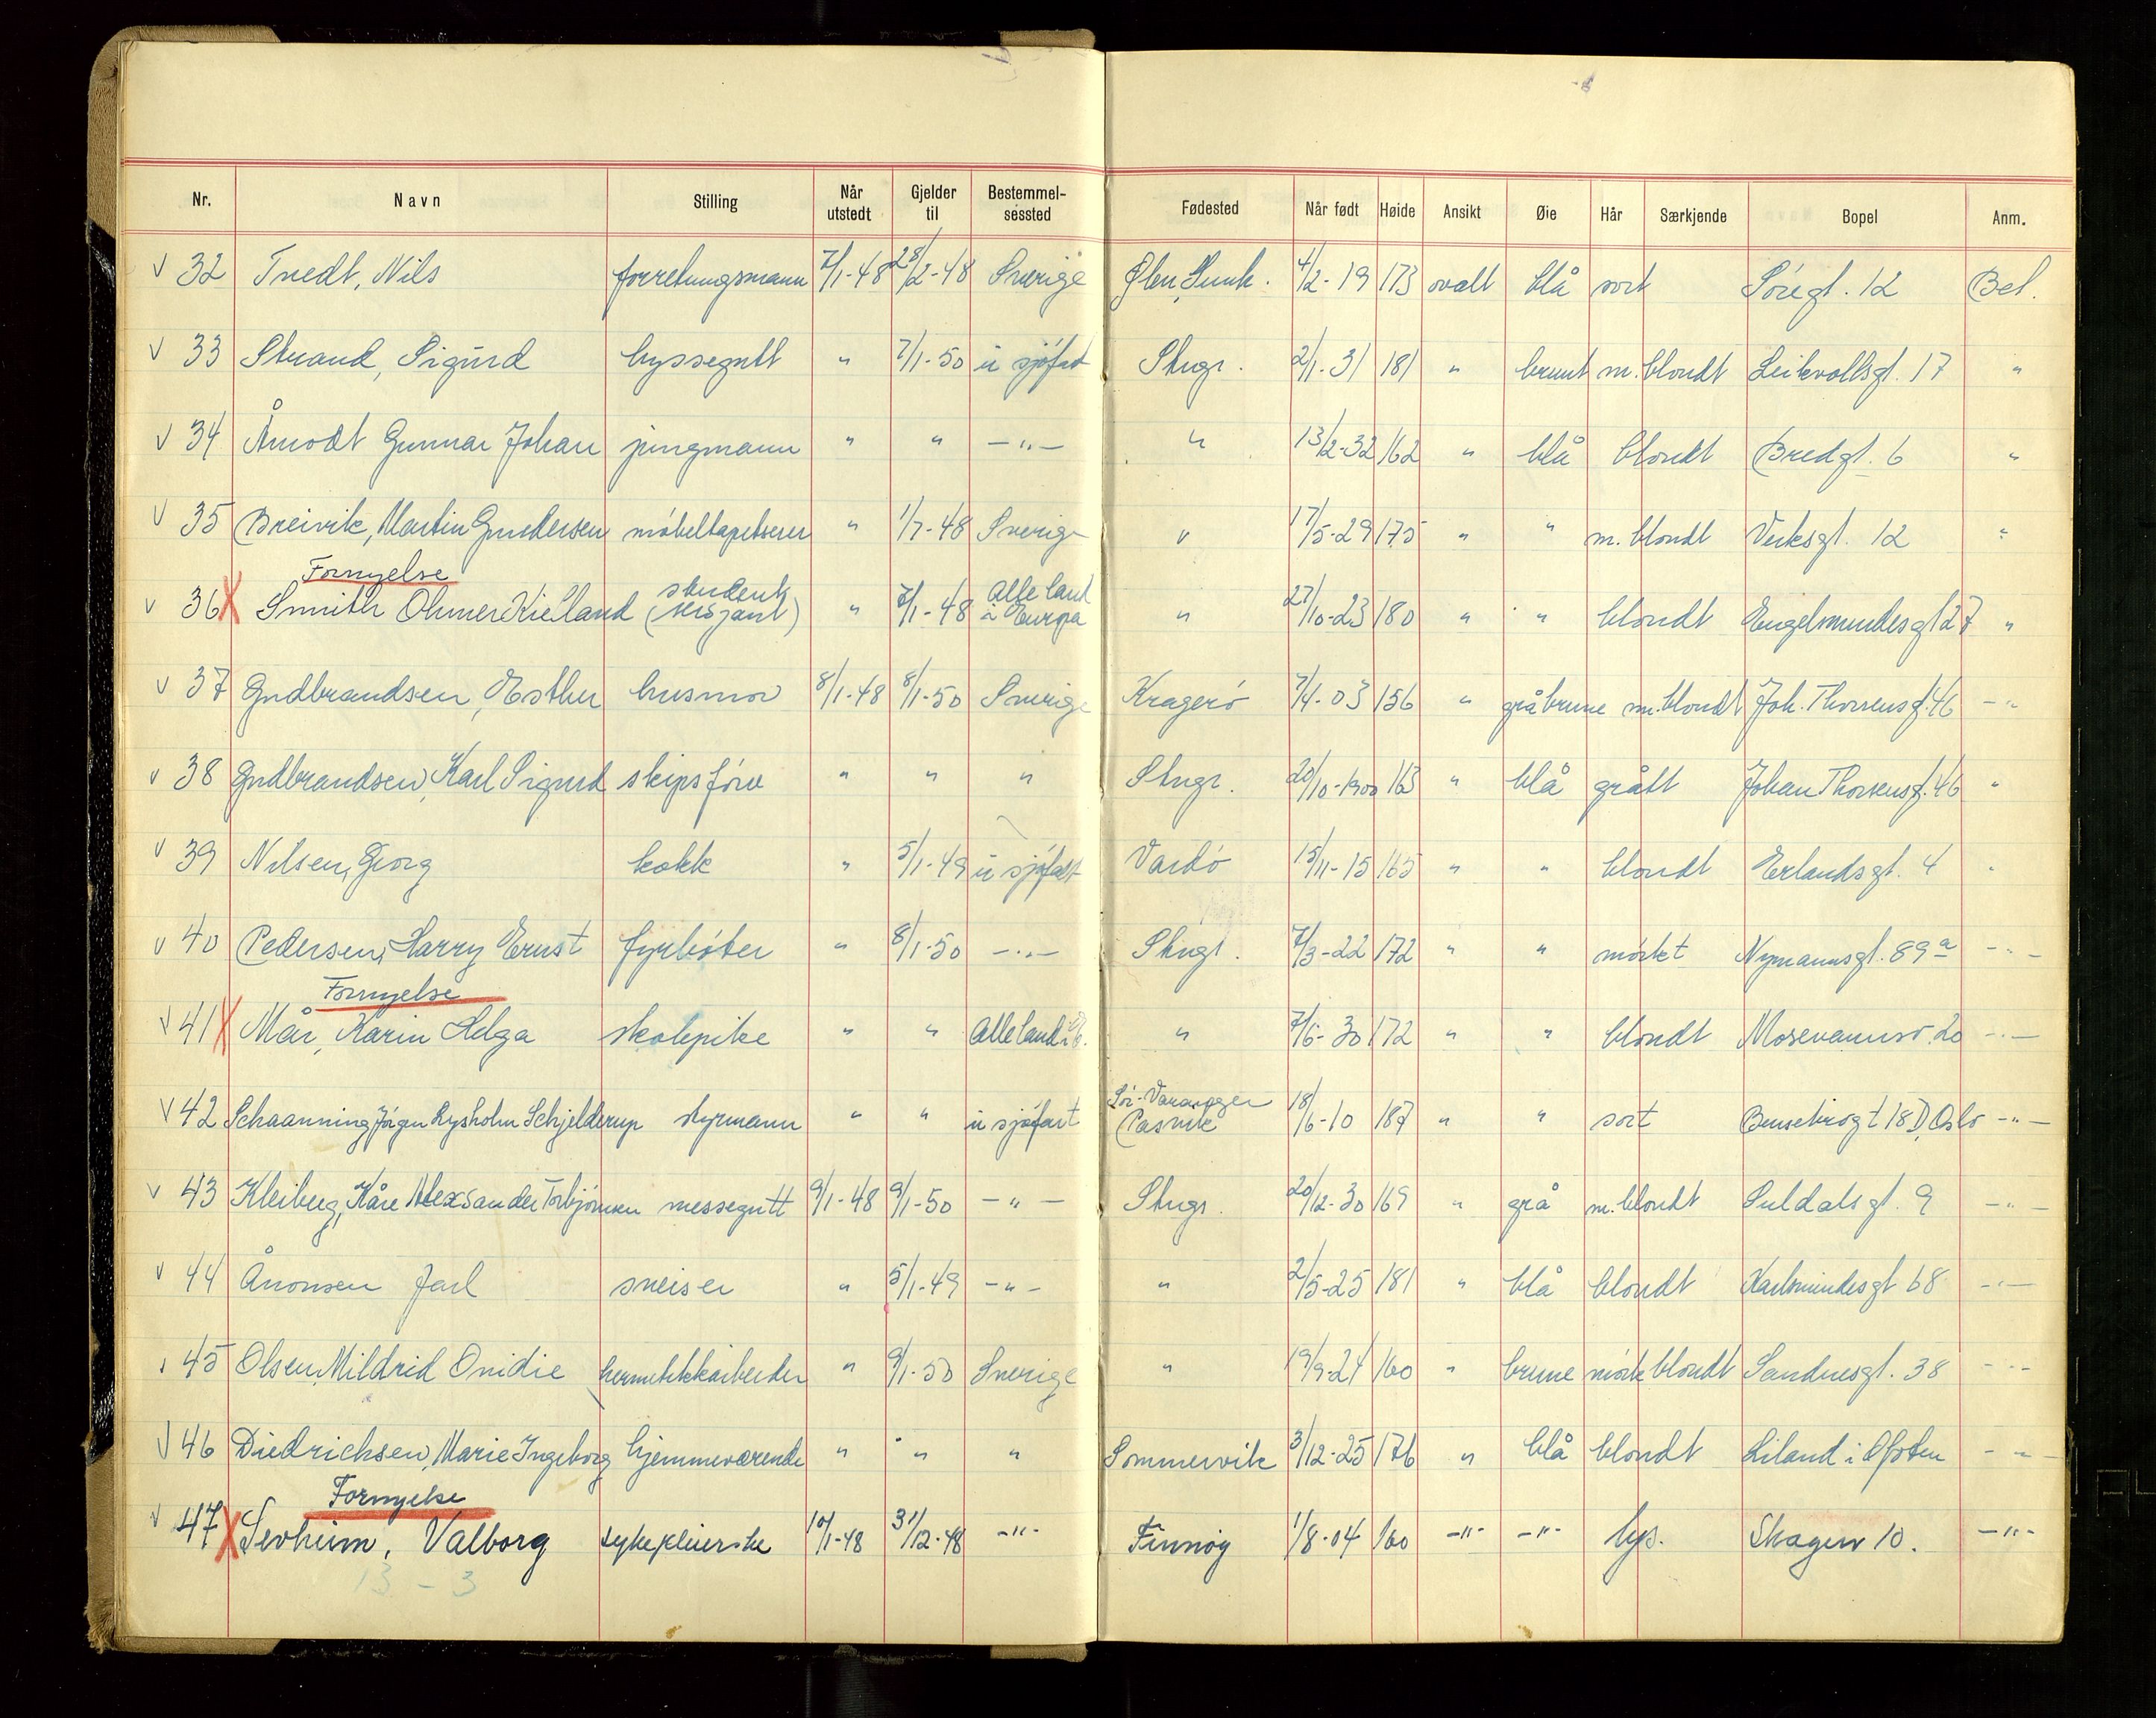 Nr. Navn Stilling Når utstedt Gjelder til Bestemmelsessted Fødested Når født Høide Ansikt Øie Hår Særkjende Bopel Anm.
v 32 Tvedt, Nils forretningsmann 7/1-48 28/2-48 Sverige Ølen, Sunnh. 4/2-19 173 ovalt blå sort Söregt. 12 Bet.
v 33 Strand, Sigurd byssegutt " 7/1-50 u sjöfart Stvgr. 2/1-31 181 " brunt m. blondt Leikvollsgt. 17 "
v 34 Åmodt Gunnar Johan jungmann " " -"- " 13/2-32 162 " blå blondt Bredgt. 6 "
v 35 Breivik, Martin Gundersen möbeltapetserer " 1/7-48 Sverige " 17/5-29 175 " " m. blondt Verksgt. 12 "
Fornyelse
v 36 X Smith Ohmer Kielland student (sersjant) " 7/1-48 Alle land i Europa " 27/10-23 180 " " blondt Engelsmindesgt 27 "
v 37 Gudbrandsen, Esther husmor 8/1-48 8/1-50 Sverige Kragerö 7/4-03 156 " gråbrune m. blondt Joh. Thorsensgt. 46 -"
v 38 Gudbrandsen, Karl Sigurd skipsförer " " " Stvgr. 20/10-1900 163 " blå grått Johan Thorsensgt. 46 "
v 39 Nilsen, Georg kokk " 5/1-49 u sjöfart Vardö 15/11-15 165 " " blondt Erlandsgt. 4 "
v 40 Pedersen, Harry Ernst fyrböter " 8/1-50 -"- Stvgr. 7/3-22 172 " " mörkt Nymannsgt. 89 a -"-
Fornyelse
v 41 X Mår, Karin Helga skolepike " " Alle land i E. " 7/6-30 172 " " blondt Mosevannsv. 20 -"-
v 42 Schaanning, Jörgen Lysholm Schjelderup styrmann " " u sjöfart Sör-Varanger Pasvik 18/6-10 187 " " sort Bensebrogt 18 D, Oslo -"-
v 43 Kleiberg, Kåre Alexsander Torbjörnsen messegutt 9/1-48 9/1-50 -"- Stvgr. 20/12-30 169 " grå m. blondt Suldalsgt. 9 -"-
v 44 Ånonsen Jarl sveiser " 5/1-49 -"- " 2/5-25 181 " blå blondt Karlsmindesgt 68 -"-
v 45 Olsen, Mildrid Ovidie hermetikkarbeider " 9/1-50 Sverige " 19/9-24 160 " brune mörk blondt Sandnesgt. 38 -"-
v 46 Diedricksen, Marie Ingeborg hjemmeværende " " " Sommervik 3/12-25 176 " blå blondt Liland i Ofoten -"-
Fornyelse
v 47 X Sevheim, Valborg sykepleierske 10/1-48 31/12-48 -"- Finnöy 1/8-04 160 -"- -"- lys. Skagen 10. -"-
13-3